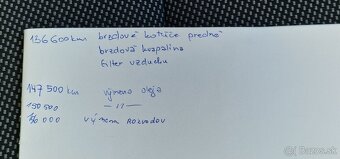 136600km brzdové kotúče predné
brzdová kvapalina
filter vzduchu
147 500 km výmena oleja
150 500 —11—
156 000 výmena rozvodov
Bazos.sk